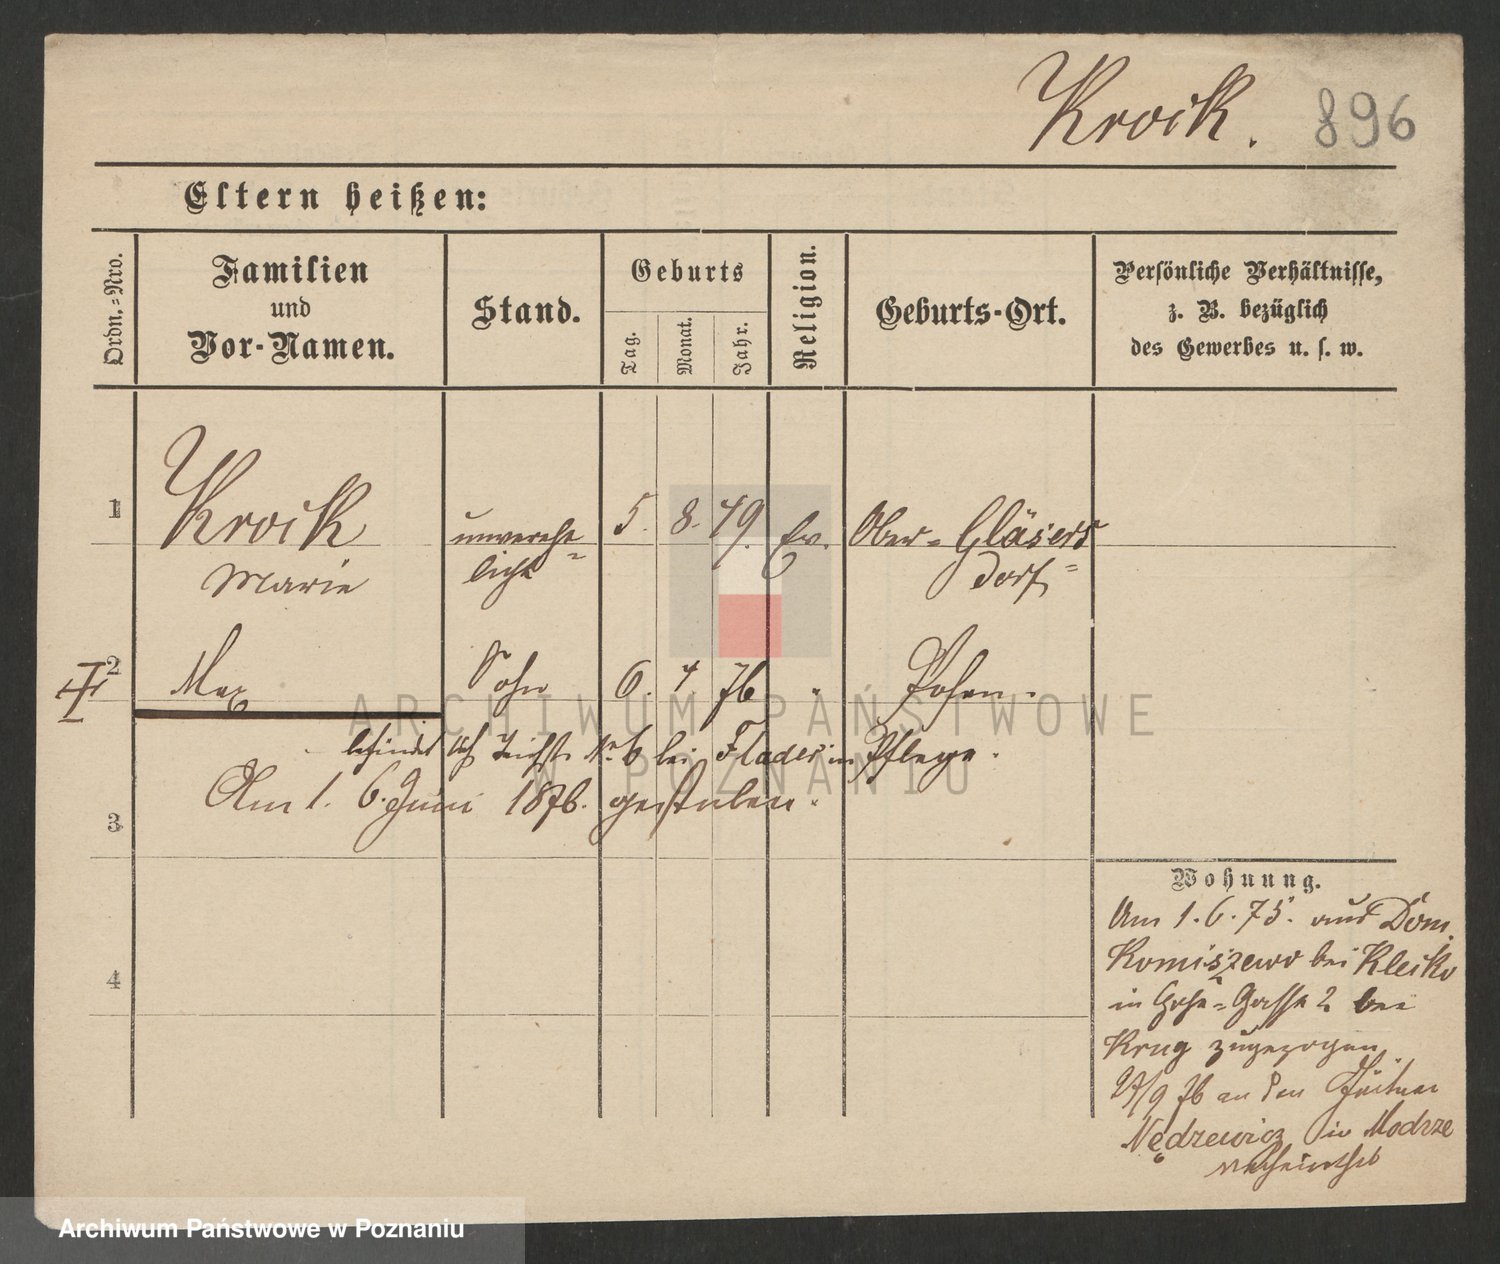 Kroik. 896
Eltern heißen:
Ordn.-Nro.
Familien
und
Vor-Namen.
Stand.
Geburts
Tag.
Monat.
Jahr.
Religion.
Geburts-Ort.
Persönliche Verhältnisse,
z. B. bezüglich
des Gewerbes u. s. w.
1 Kroik unverehe- 5. 8. 49. Ev. Ober-Gläsers-
Marie licht dorf
2 Max Sohn 6. 4 76 " Posen.
befindet sich Nr. 6 bei Flader in Pflege.
Am 6. Juni 1876. gestorben.
3
4
Wohnung.
Am 1.6.75. aus Dom.
Komiszewo bei Kletzko
in Gasse 2 bei
Krug zugezogen.
/9 76 an den Gärtner
Nędzewicz in Modrze
verheirathet
ARCHIWUM PAŃSTWOWE
W POZNANIU
Archiwum Państwowe w Poznaniu